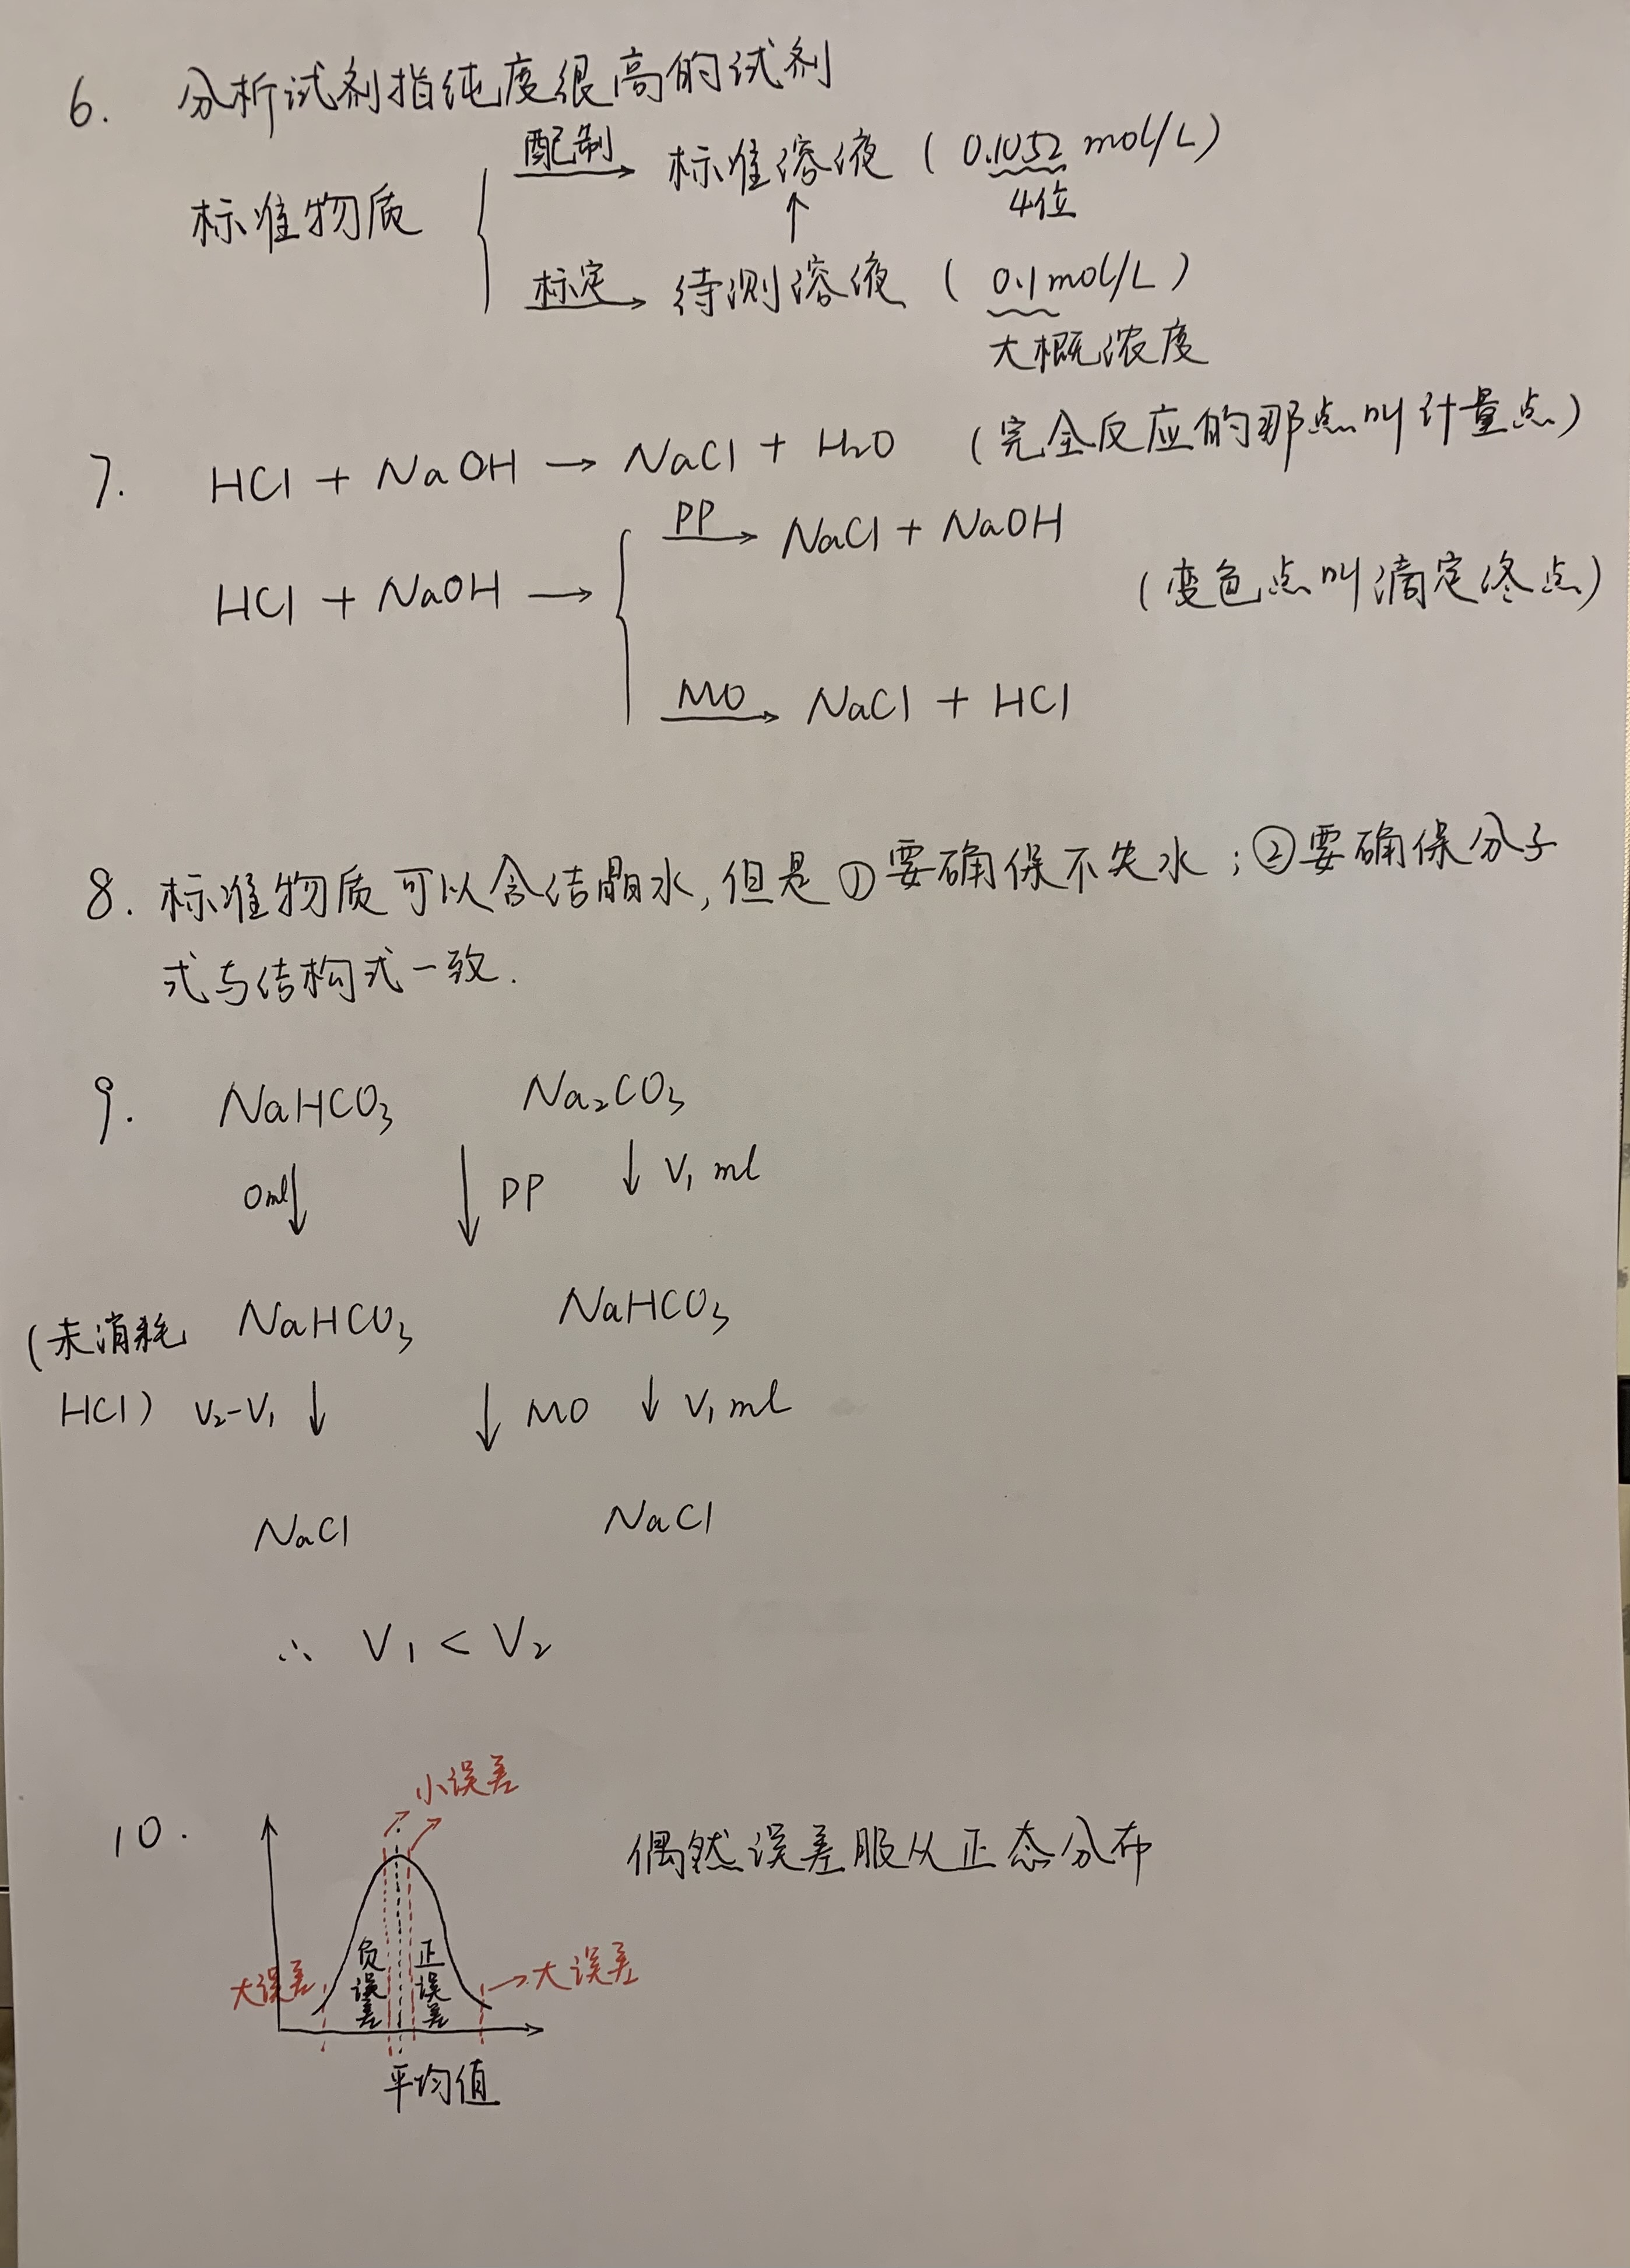 6. 分析试剂指纯度很高的试剂
标准物质 { 配制→ 标准溶液 ( 0.1052 mol/L )
↑ 4位
标定→ 待测溶液 ( 0.1mol/L )
大概浓度
7. HCl + NaOH → NaCl + H₂O (完全反应的那点叫计量点)
HCl + NaOH → { PP→ NaCl + NaOH
(变色点叫滴定终点)
MO→ NaCl + HCl
8. 标准物质可以含结晶水, 但是①要确保不失水; ②要确保分子
式与结构式一致.
9. NaHCO₃ Na₂CO₃
0ml↓ ↓ PP ↓ V₁ ml
(未消耗 NaHCO₃ NaHCO₃
HCl) V₂-V₁ ↓ ↓ MO ↓ V₁ ml
NaCl NaCl
∴ V₁ < V₂
小误差
10. 偶然误差服从正态分布
负误差 正误差
大误差 →大误差
平均值